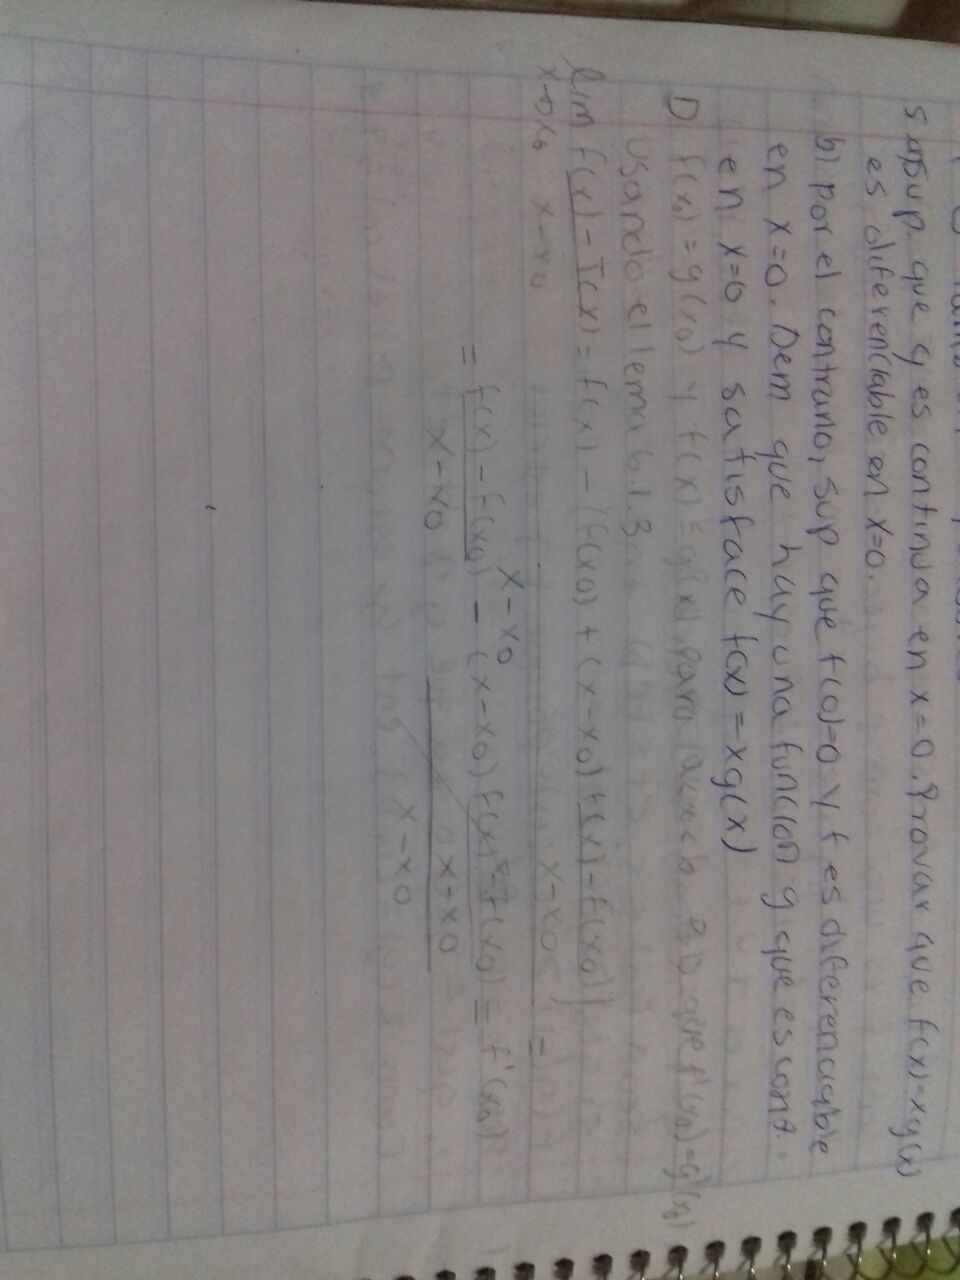 5 a) Sup que g es continua en x=0. Provar que f(x)=xg(x)
es diferenciable en x=0.
b) Por el contrario, sup que f(0)=0 y f es diferenciable
en x=0. Dem que hay una función g que es cont.
en x=0 y satisface f(x)=xg(x)
D f(x₀)=g(x₀) y f(x)=g(x) para a<x<b. P.D que f'(x₀)=g'(x₀)
Usando el lema 6.1.3
lim f(x)-T(x) = f(x) - (f(x₀) + (x-x₀) f(x)-f(x₀)) =
x→x₀ x-x₀ x-x₀
x-x₀
= f(x)-f(x₀) - (x-x₀) f(x)-f(x₀) = f'(x₀)
x-x₀ x-x₀
x-x₀